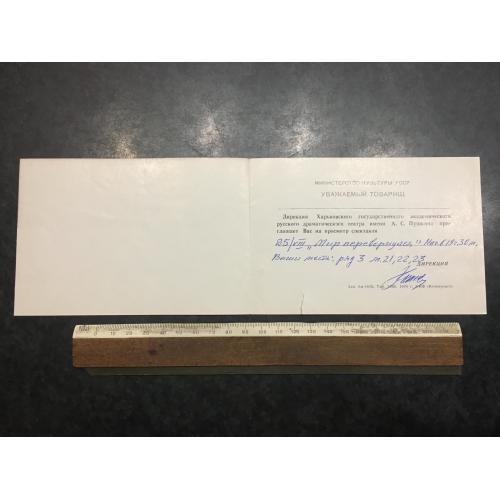 МИНИСТЕРСТВО КУЛЬТУРЫ УССР
УВАЖАЕМЫЙ ТОВАРИЩ
Дирекция Харьковского государственного академического
русского драматического театра имени А. С. Пушкина при-
глашает Вас на просмотр спектакля
25/VIII „Мир перевернулся" Нач. в 19ч. 30 м.
Ваши места: ряд 3 м. 21, 22, 23
ДИРЕКЦИЯ